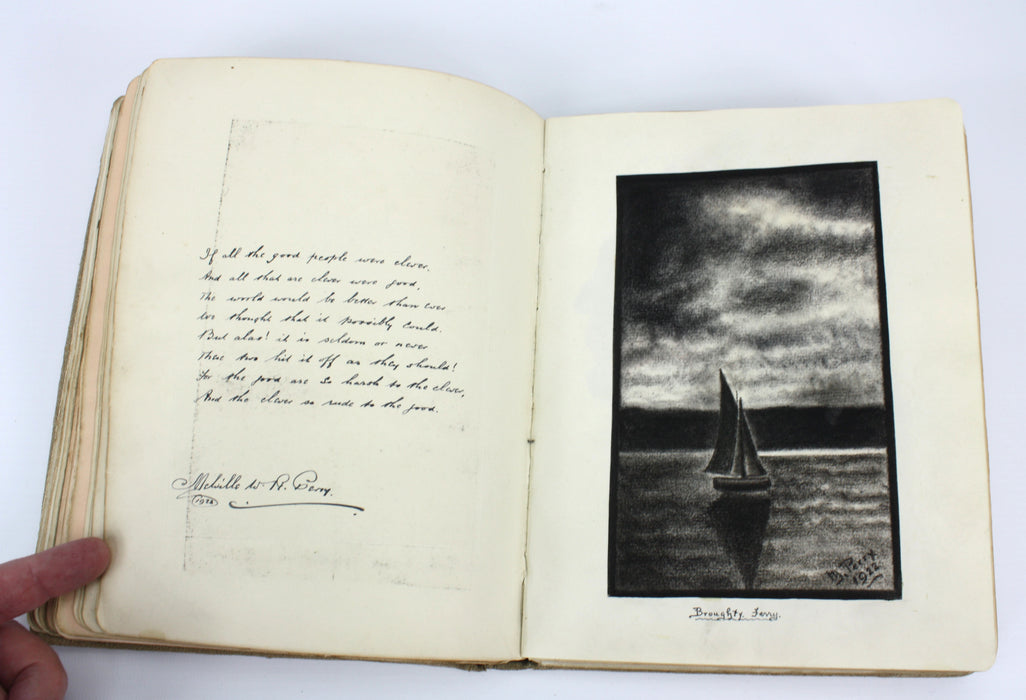 If all the good people were clever,
And all that are clever were good,
The world would be better than ever
We thought that it possibly could.
But alas! it is seldom or never
These two hit it off as they should!
For the good are so harsh to the clever,
And the clever so rude to the good.
Melville W. R. Perry.
1922
M. Perry
1922
Broughty Ferry.